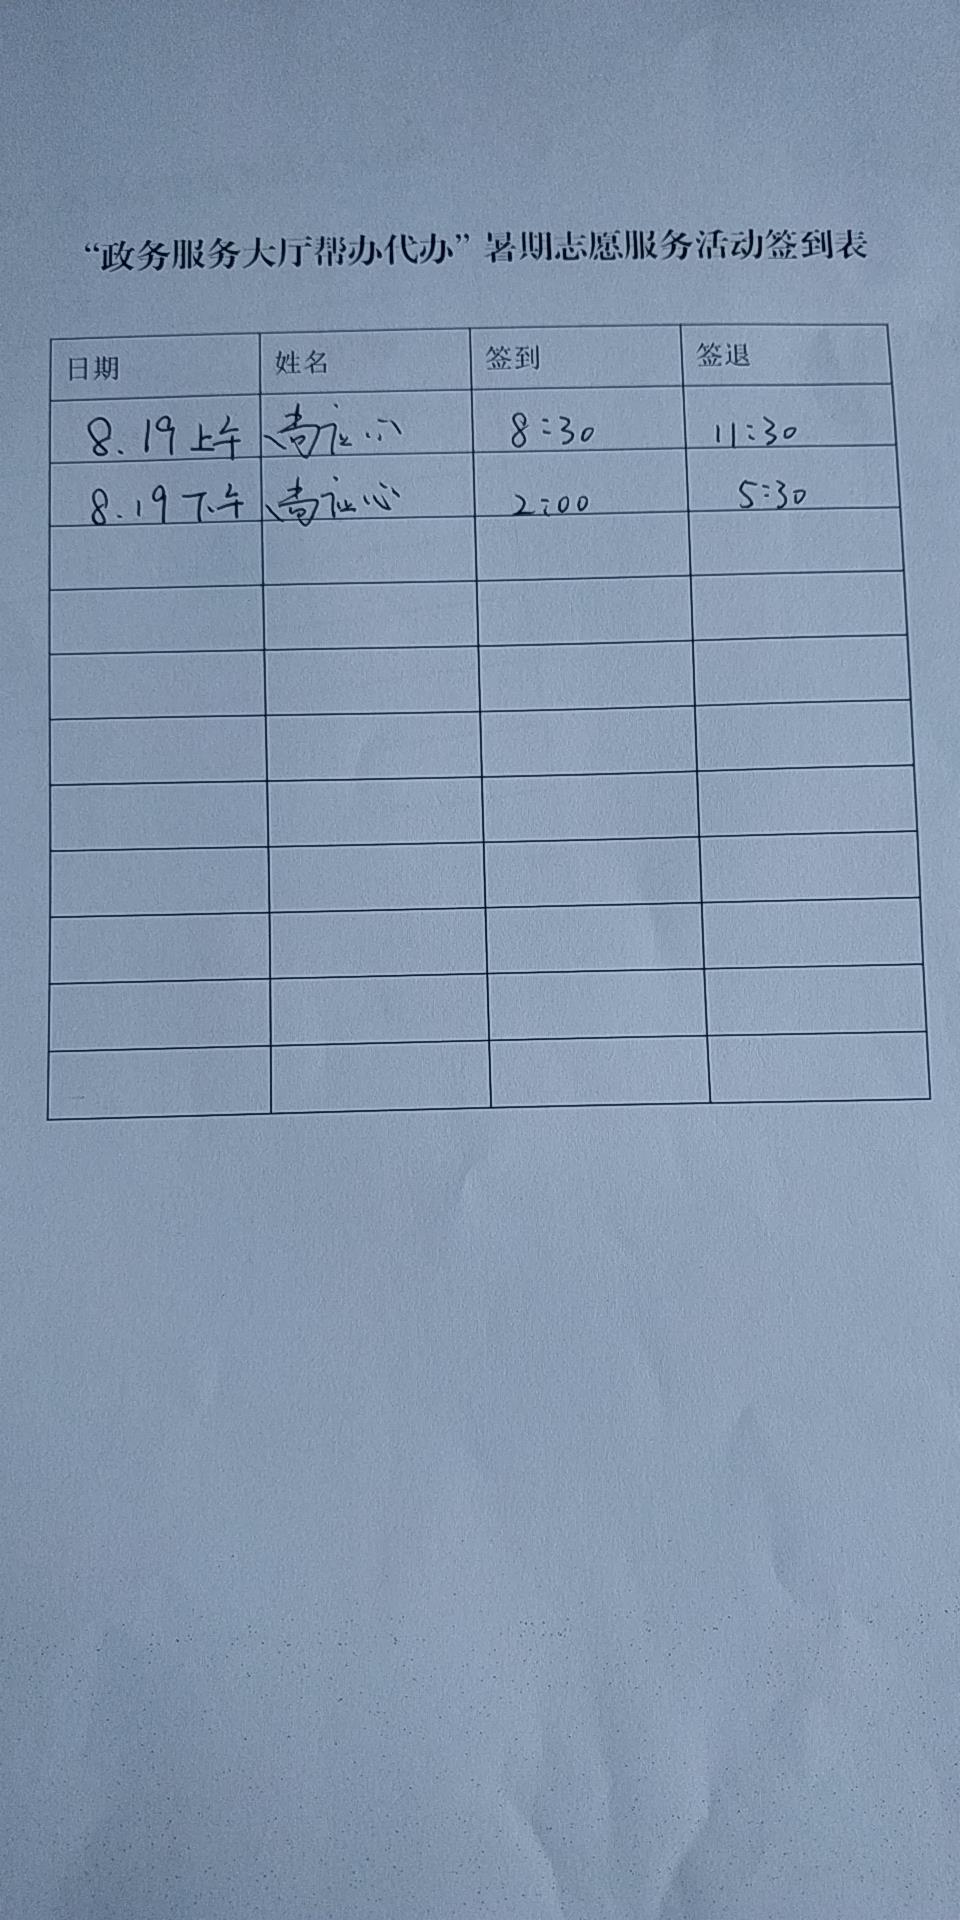 “政务服务大厅帮办代办”暑期志愿服务活动签到表
日期 姓名 签到 签退
8.19上午 8:30 11:30
8.19下午 2:00 5:30